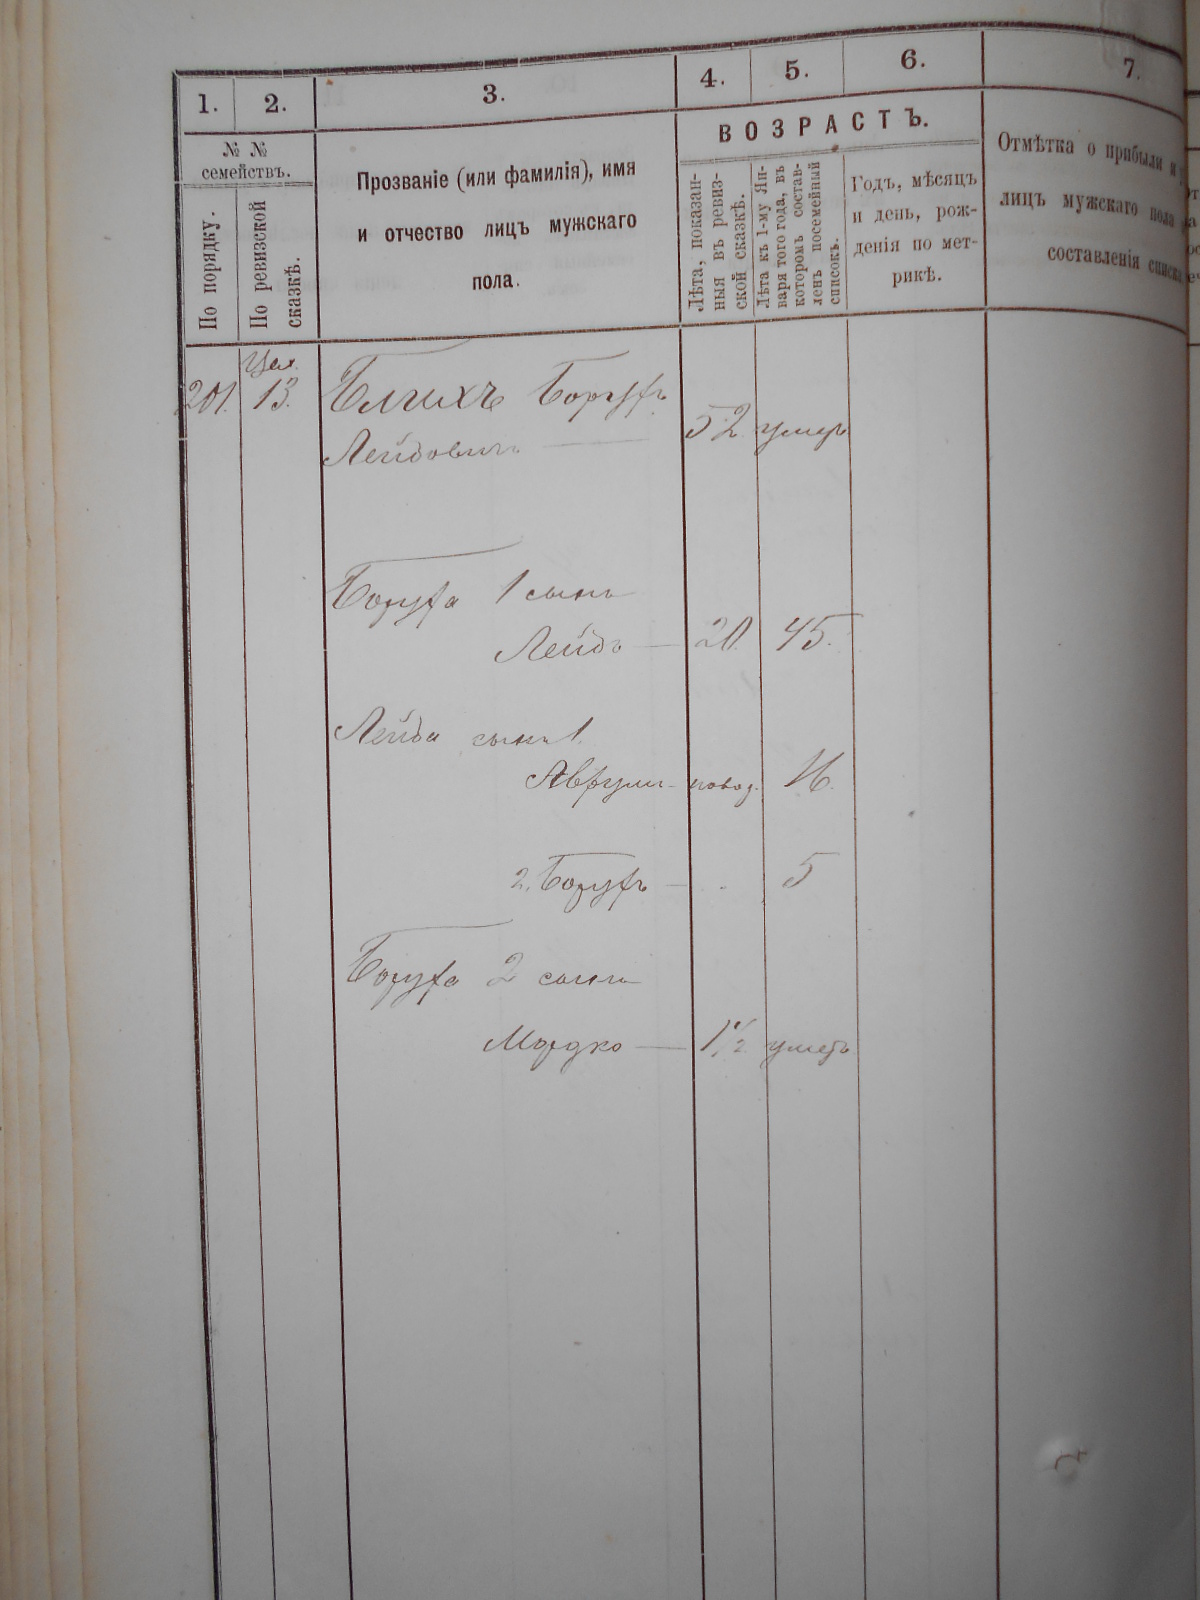 1. 2. 3. 4. 5. 6. 7.
№ № семействъ.
По порядку.
По ревизской
сказкѣ.
Прозваніе (или фамилія), имя
и отчество лицъ мужскаго
пола.
ВОЗРАСТЪ.
Лѣта, показан-
ныя въ ревиз-
ской сказкѣ.
Лѣта къ 1-му Ян-
варя того года, въ
которомъ состав-
ленъ посемейный
списокъ.
Годъ, мѣсяцъ
и день, рож-
денія по мет-
рикѣ.
Отмѣтка о прибыли и
лицъ мужскаго пола
составленія списка
201. 13. Блихъ Борухъ
Лейбовичъ 52 умеръ
Боруха 1 сынъ
Лейба 20 45.
Лейба сынъ 1.
Аврумъ новор. 16.
2. Борухъ 5
Боруха 2 сынъ
Мордко 1 1/2 умеръ